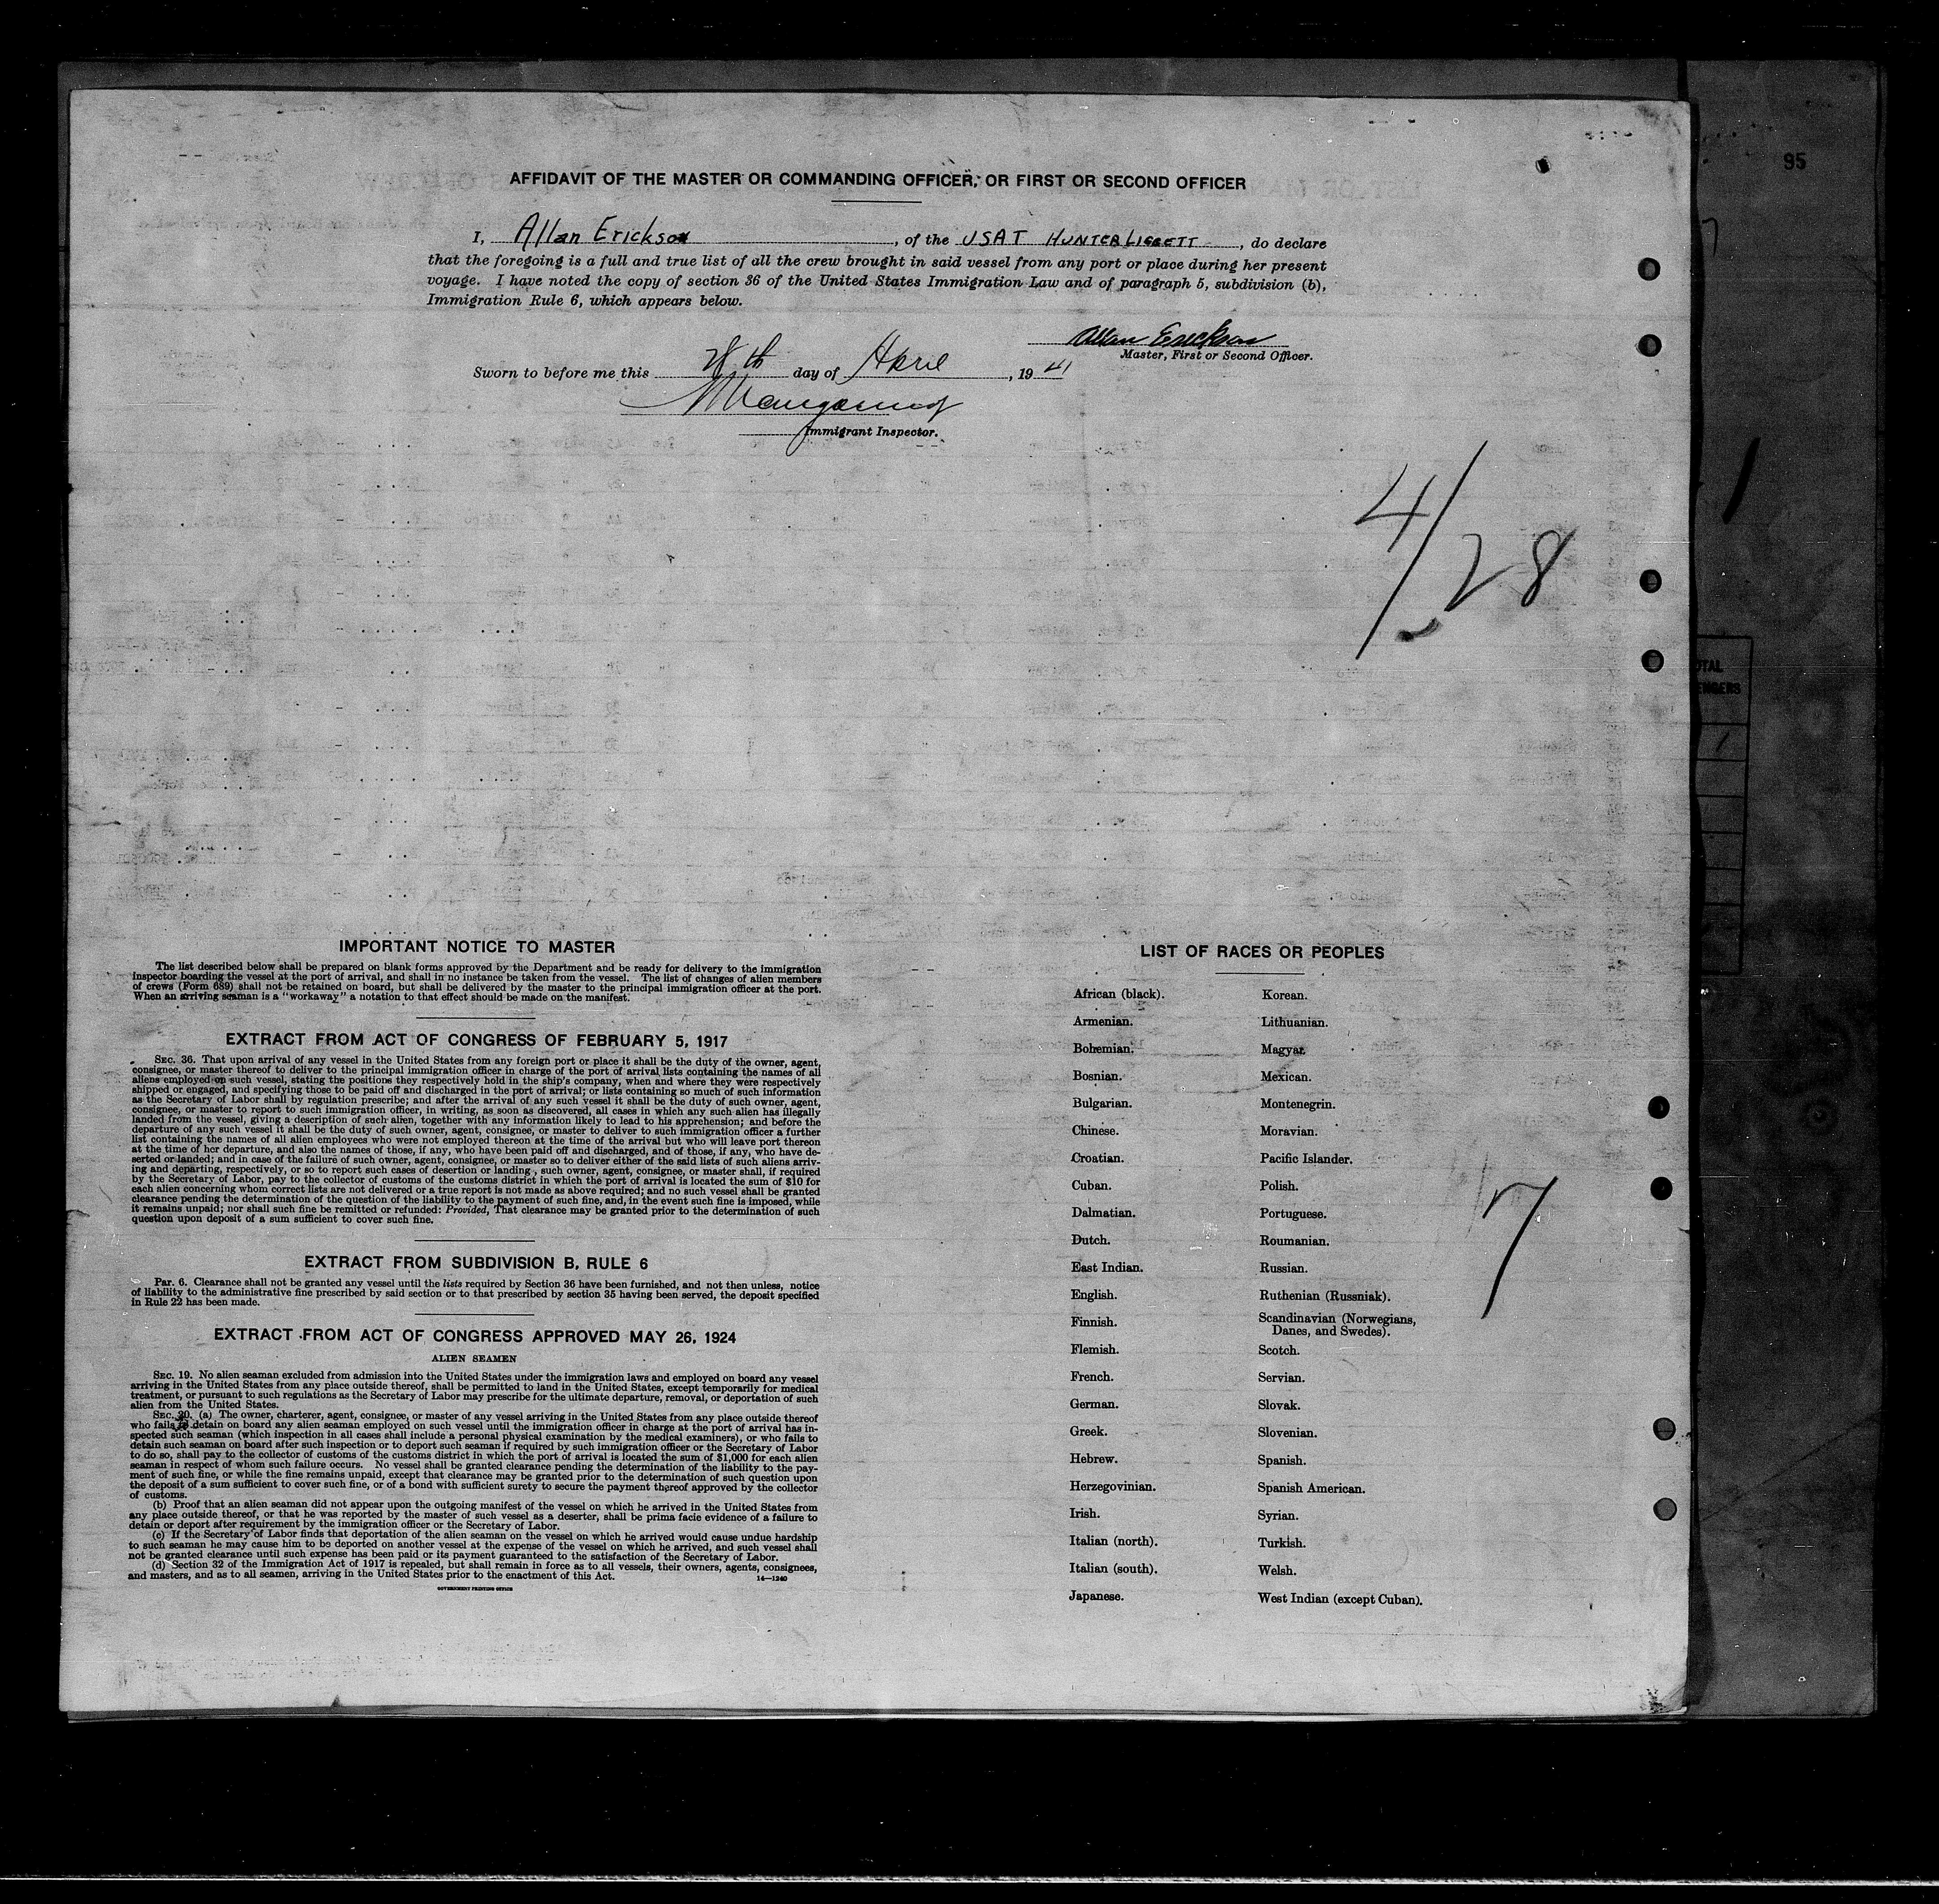 95
AFFIDAVIT OF THE MASTER OR COMMANDING OFFICER, OR FIRST OR SECOND OFFICER
I, Allan Erickson, of the USAT HUNTER LIGGETT, do declare
that the foregoing is a full and true list of all the crew brought in said vessel from any port or place during her present
voyage. I have noted the copy of section 36 of the United States Immigration Law and of paragraph 5, subdivision (b),
Immigration Rule 6, which appears below.
Allan Erickson
Master, First or Second Officer.
Sworn to before me this 28th day of April, 1941
Immigrant Inspector.
4/28
IMPORTANT NOTICE TO MASTER
The list described below shall be prepared on blank forms approved by the Department and be ready for delivery to the immigration
inspector boarding the vessel at the port of arrival, and shall in no instance be taken from the vessel. The list of changes of alien members
of crews (Form 689) shall not be retained on board, but shall be delivered by the master to the principal immigration officer at the port.
When an arriving seaman is a "workaway" a notation to that effect should be made on the manifest.
EXTRACT FROM ACT OF CONGRESS OF FEBRUARY 5, 1917
SEC. 36. That upon arrival of any vessel in the United States from any foreign port or place it shall be the duty of the owner, agent,
consignee, or master thereof to deliver to the principal immigration officer in charge of the port of arrival lists containing the names of all
aliens employed on such vessel, stating the positions they respectively hold in the ship's company, when and where they were respectively
shipped or engaged, and specifying those to be paid off and discharged in the port of arrival; or lists containing so much of such information
as the Secretary of Labor shall by regulation prescribe; and after the arrival of any such vessel it shall be the duty of such owner, agent,
consignee, or master to report to such immigration officer, in writing, as soon as discovered, all cases in which any such alien has illegally
landed from the vessel, giving a description of such alien, together with any information likely to lead to his apprehension; and before the
departure of any such vessel it shall be the duty of such owner, agent, consignee, or master to deliver to such immigration officer a further
list containing the names of all alien employees who were not employed thereon at the time of the arrival but who will leave port thereon
at the time of her departure, and also the names of those, if any, who have been paid off and discharged, and of those, if any, who have de-
serted or landed; and in case of the failure of such owner, agent, consignee, or master so to deliver either of the said lists of such aliens arriv-
ing and departing, respectively, or so to report such cases of desertion or landing, such owner, agent, consignee, or master shall, if required
by the Secretary of Labor, pay to the collector of customs of the customs district in which the port of arrival is located the sum of $10 for
each alien concerning whom correct lists are not delivered or a true report is not made as above required; and no such vessel shall be granted
clearance pending the determination of the question of the liability to the payment of such fine, and, in the event such fine is imposed, while
it remains unpaid; nor shall such fine be remitted or refunded: Provided, That clearance may be granted prior to the determination of such
question upon deposit of a sum sufficient to cover such fine.
EXTRACT FROM SUBDIVISION B, RULE 6
Par. 6. Clearance shall not be granted any vessel until the lists required by Section 36 have been furnished, and not then unless, notice
of liability to the administrative fine prescribed by said section or to that prescribed by section 35 having been served, the deposit specified
in Rule 22 has been made.
EXTRACT FROM ACT OF CONGRESS APPROVED MAY 26, 1924
ALIEN SEAMEN
SEC. 19. No alien seaman excluded from admission into the United States under the immigration laws and employed on board any vessel
arriving in the United States from any place outside thereof, shall be permitted to land in the United States, except temporarily for medical
treatment, or pursuant to such regulations as the Secretary of Labor may prescribe for the ultimate departure, removal, or deportation of such
alien from the United States.
SEC. 20. (a) The owner, charterer, agent, consignee, or master of any vessel arriving in the United States from any place outside thereof
who fails to detain on board any alien seaman employed on such vessel until the immigration officer in charge at the port of arrival has in-
spected such seaman (which inspection in all cases shall include a personal physical examination by the medical examiners), or who fails to
detain such seaman on board after such inspection or to deport such seaman if required by such immigration officer or the Secretary of Labor
to do so, shall pay to the collector of customs of the customs district in which the port of arrival is located the sum of $1,000 for each alien
seaman in respect of whom such failure occurs. No vessel shall be granted clearance pending the determination of the liability to the pay-
ment of such fine, or while the fine remains unpaid, except that clearance may be granted prior to the determination of such question upon
the deposit of a sum sufficient to cover such fine, or of a bond with sufficient surety to secure the payment thereof approved by the collector
of customs.
(b) Proof that an alien seaman did not appear upon the outgoing manifest of the vessel on which he arrived in the United States from
any place outside thereof, or that he was reported by the master of such vessel as a deserter, shall be prima facie evidence of a failure to
detain or deport after requirement by the immigration officer or the Secretary of Labor.
(c) If the Secretary of Labor finds that deportation of the alien seaman on the vessel on which he arrived would cause undue hardship
to such seaman he may cause him to be deported on another vessel at the expense of the vessel on which he arrived, and such vessel shall
not be granted clearance until such expense has been paid or its payment guaranteed to the satisfaction of the Secretary of Labor.
(d) Section 32 of the Immigration Act of 1917 is repealed, but shall remain in force as to all vessels, their owners, agents, consignees,
and masters, and as to all seamen, arriving in the United States prior to the enactment of this Act.
14—1240
GOVERNMENT PRINTING OFFICE
LIST OF RACES OR PEOPLES
African (black).
Armenian.
Bohemian.
Bosnian.
Bulgarian.
Chinese.
Croatian.
Cuban.
Dalmatian.
Dutch.
East Indian.
English.
Finnish.
Flemish.
French.
German.
Greek.
Hebrew.
Herzegovinian.
Irish.
Italian (north).
Italian (south).
Japanese.
Korean.
Lithuanian.
Magyar.
Mexican.
Montenegrin.
Moravian.
Pacific Islander.
Polish.
Portuguese.
Roumanian.
Russian.
Ruthenian (Russniak).
Scandinavian (Norwegians,
Danes, and Swedes).
Scotch.
Servian.
Slovak.
Slovenian.
Spanish.
Spanish American.
Syrian.
Turkish.
Welsh.
West Indian (except Cuban).
7